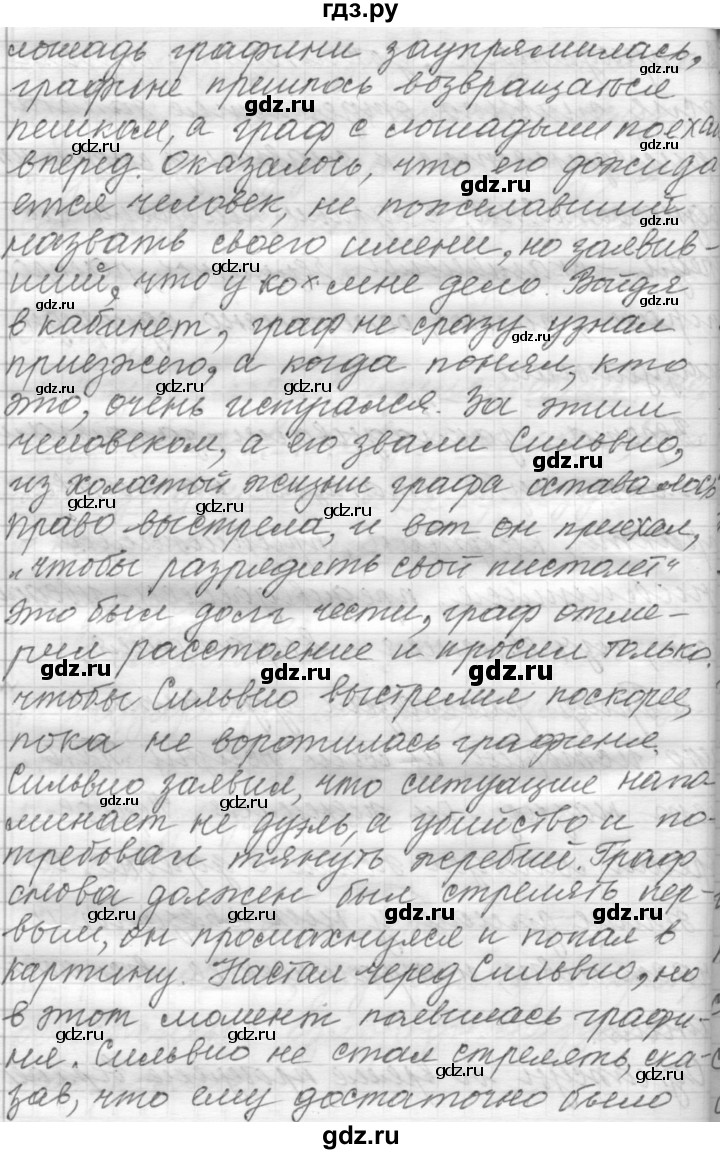 гдз.ру
лошадь графини заупрямилась,
графине пришлось возвращаться
пешком, а граф с лошадьми поехал
вперед. Оказалось, что его дожида
ется человек, не пожелавший
назвать своего имени, но заявив-
ший, что у кох мне дело. Войдя
в кабинет, граф не сразу узнал
приезжего, а когда понял, кто
это, очень испугался. За этим
человеком, а его звали Сильвио,
из холостой жизни графа оставалось
право выстрела, и вот он приехал,
„чтобы разрядить свой пистолет“
Это был долг чести, граф отме-
рил расстояние и просил только,
чтобы Сильвио выстрелил поскорее,
пока не воротилась графиня.
Сильвио заявил, что ситуация напо
минает не дуэль, а убийство и по-
требовал тянуть жребий. Граф
снова должен был стрелять пер-
вым, он промахнулся и попал в
картину. Настал черед Сильвио, но
в этот момент появилась графи-
ня. Сильвио не стал стрелять, ска-
зав, что ему достаточно было
gdz.ru